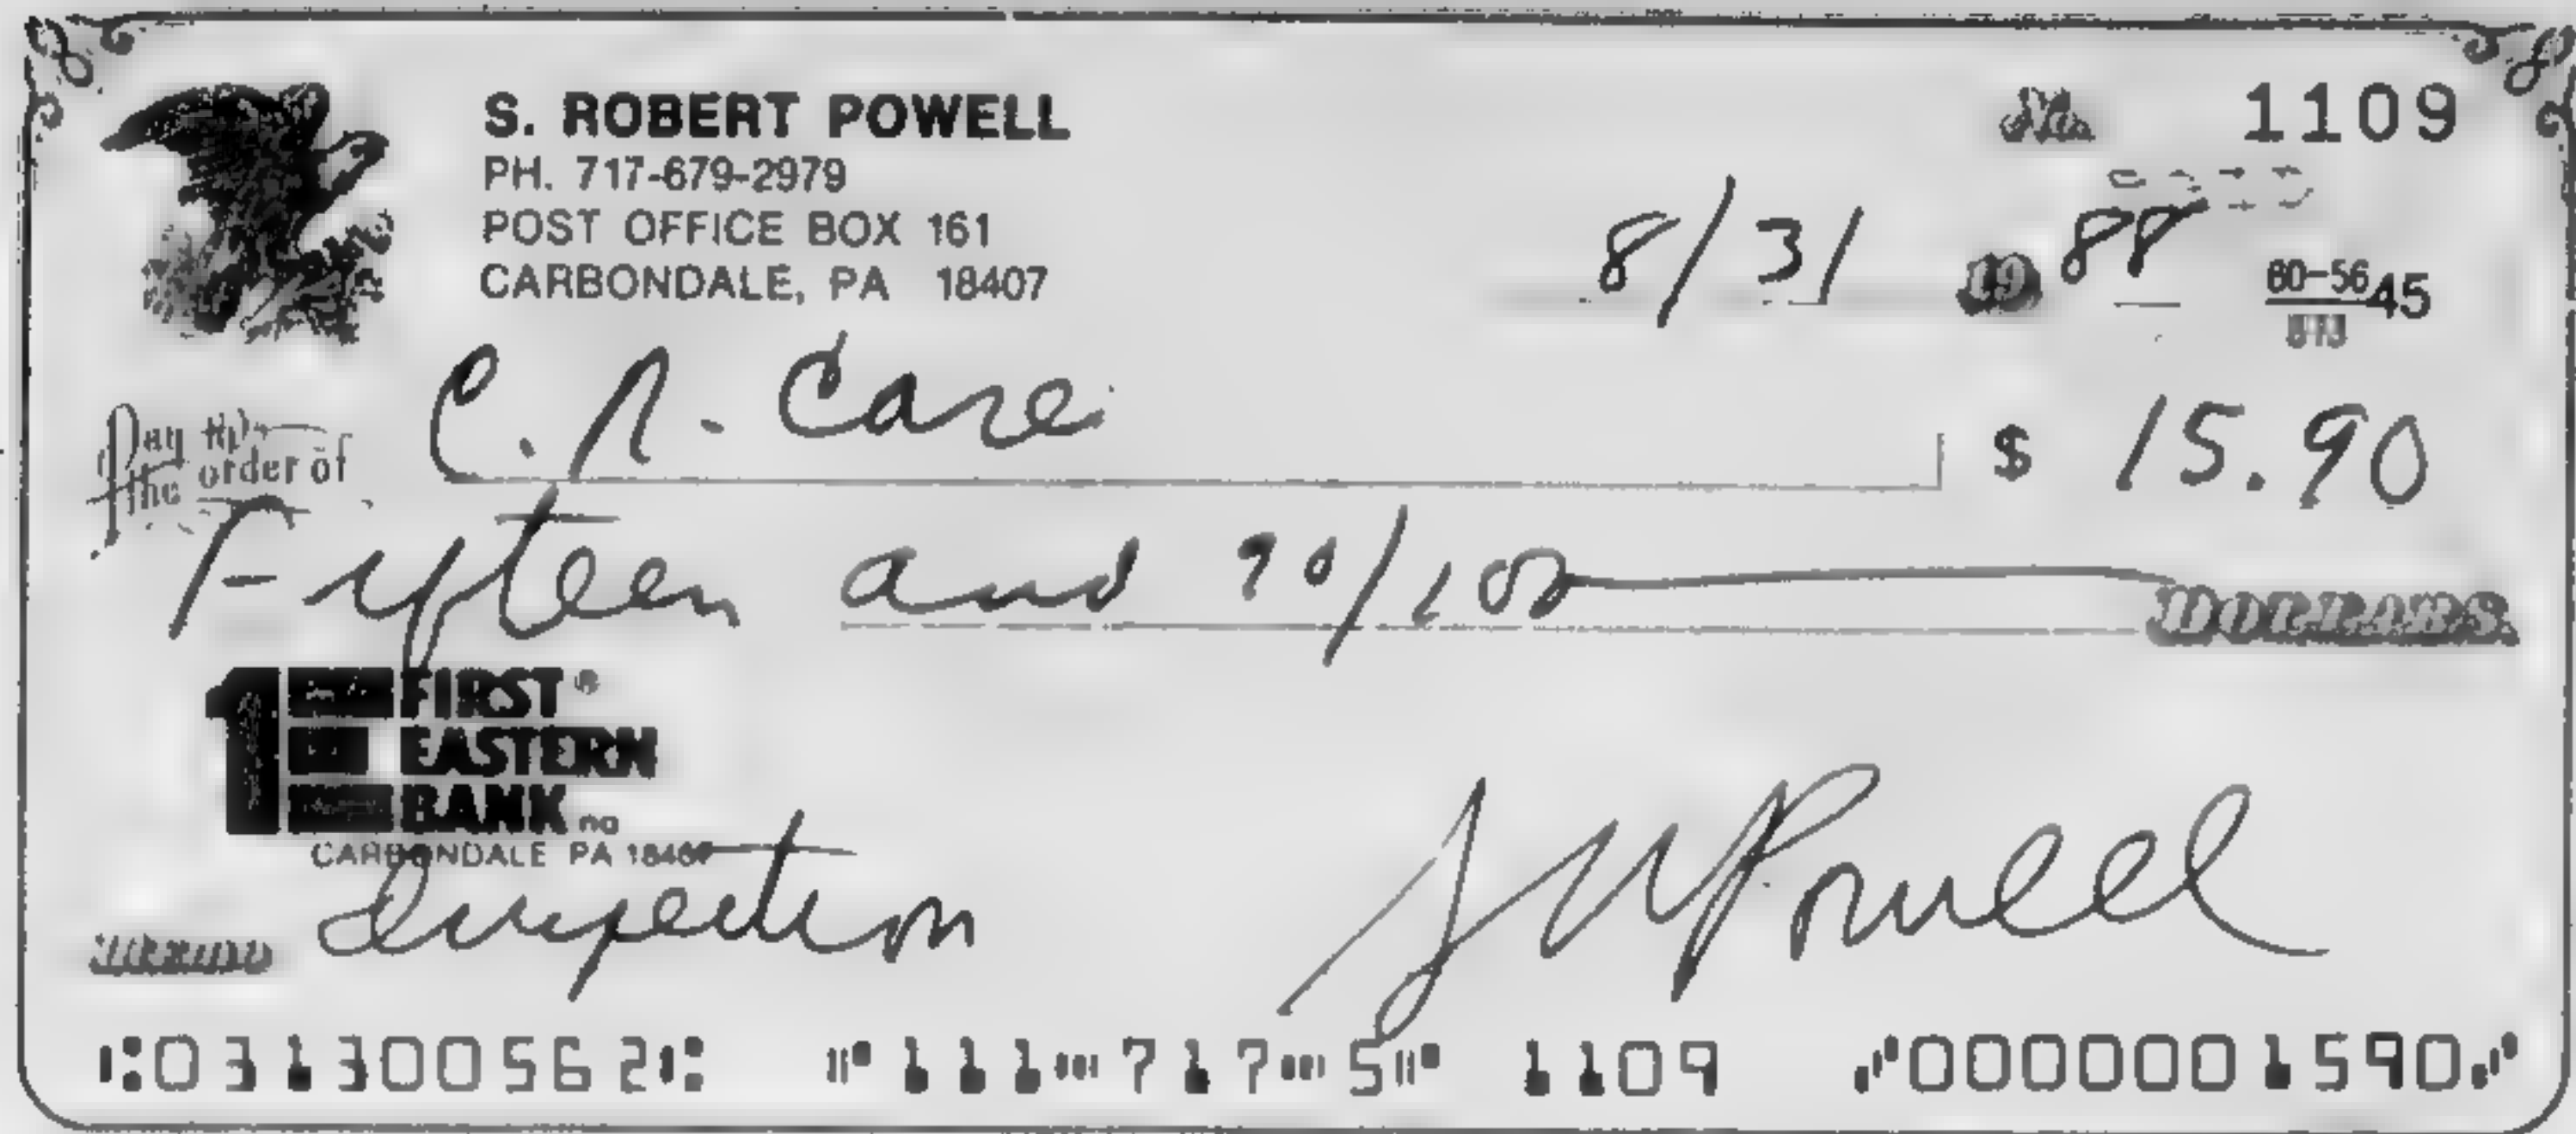 S. ROBERT POWELL
No. 1109
PH. 717-679-2979
POST OFFICE BOX 161
CARBONDALE, PA 18407
8/31 19 88
60-5645
313
Pay to the order of C. R. Care $ 15.90
Fifteen and 90/100 DOLLARS
1 FIRST®
EASTERN
BANK na
CARBONDALE PA 18407
MEMO Inspection
S R Powell
⑆031300562⑆ ⑈111⑉717⑉5⑈ 1109 ⑇0000001590⑇